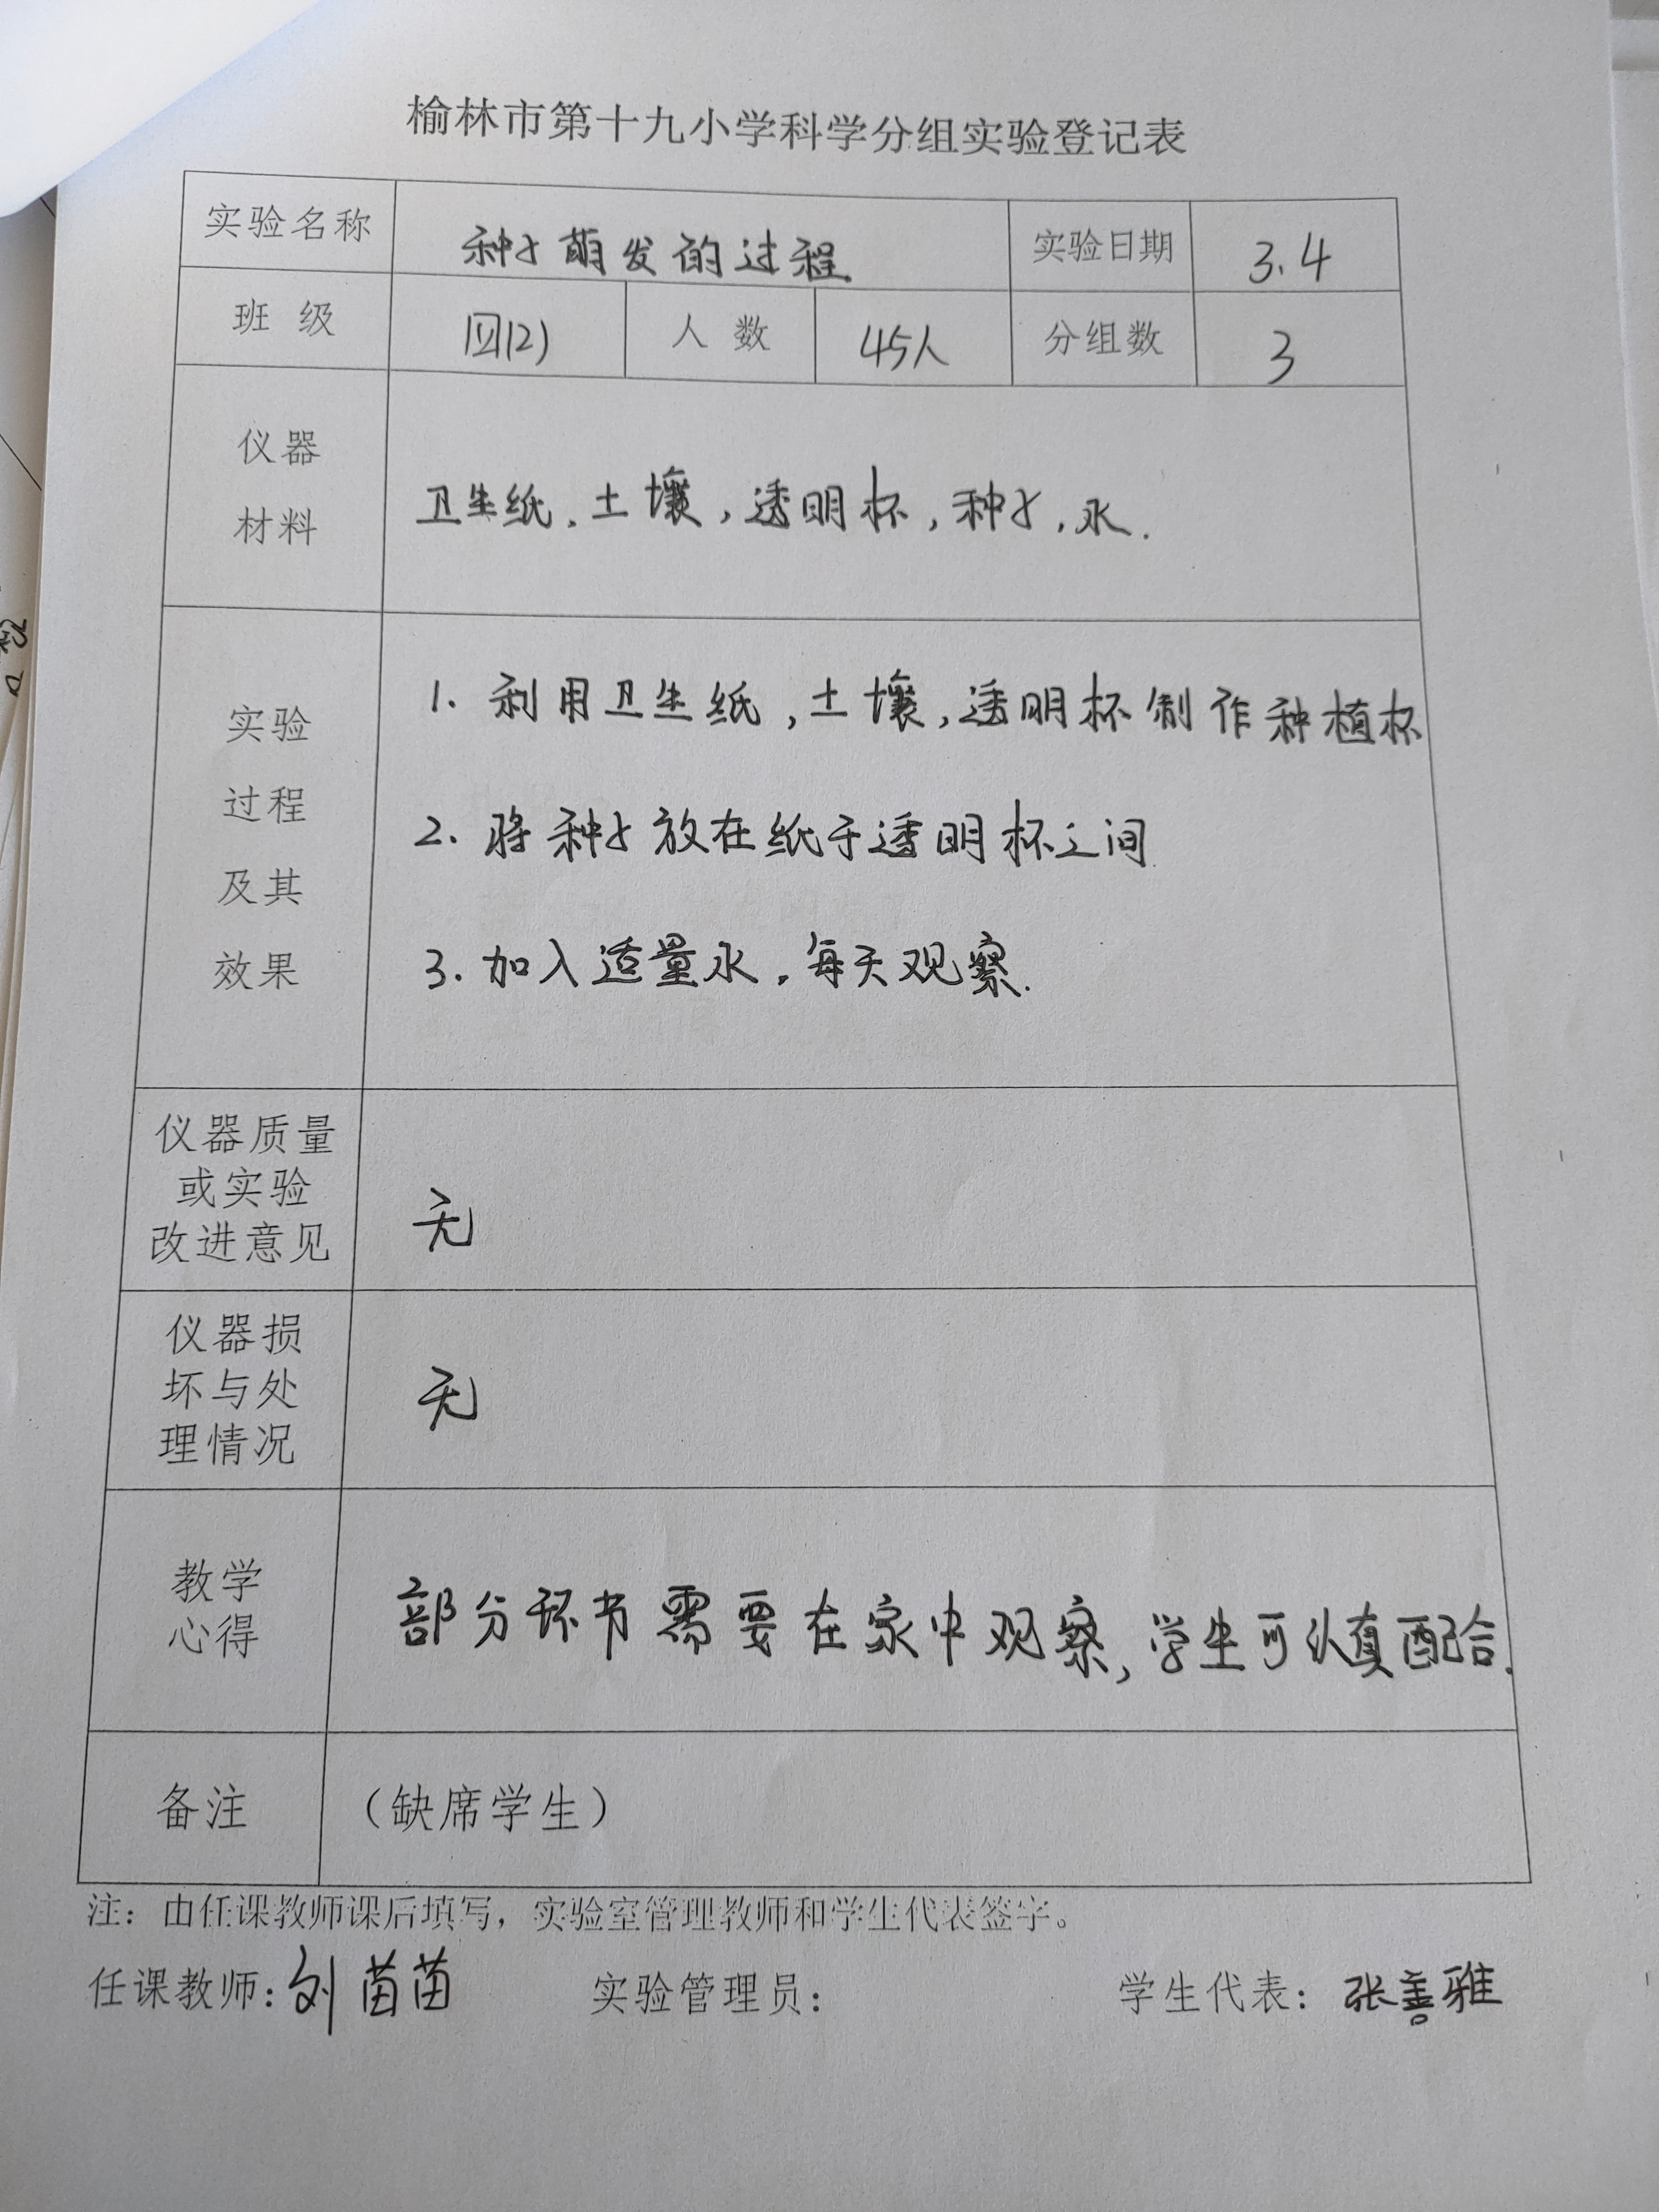 榆林市第十九小学科学分组实验登记表
实验名称 种子萌发的过程 实验日期 3.4
班 级 四(2) 人 数 45人 分组数 3
仪器
材料
卫生纸，土壤，透明杯，种子，水．
实验
过程
及其
效果
1. 利用卫生纸，土壤，透明杯制作种植杯
2. 将种子放在纸于透明杯之间
3. 加入适量水，每天观察．
仪器质量
或实验
改进意见
无
仪器损
坏与处
理情况
无
教学
心得
部分环节需要在家中观察，学生可认真配合．
备注 （缺席学生）
注：由任课教师课后填写，实验室管理教师和学生代表签字。
任课教师：刘苗苗 实验管理员： 学生代表：张善雅